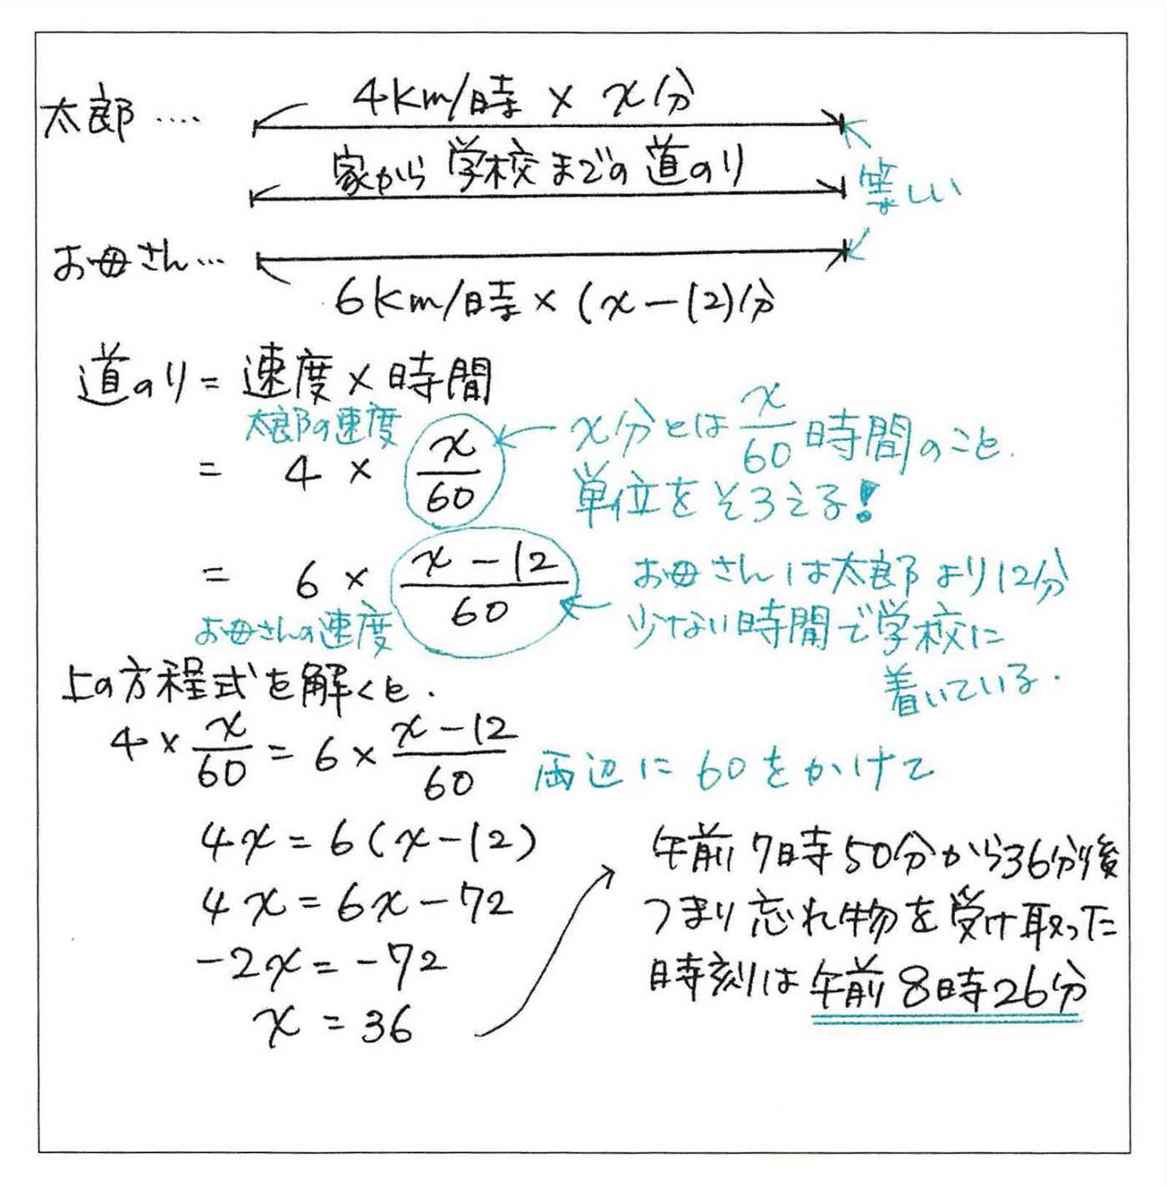 太郎‥‥ 4km/時 × x分
家から学校までの道のり
等しい
お母さん… 6km/時×(x-12)分
道のり=速度×時間
太郎の速度
= 4 × x/60 x分とは x/60 時間のこと.
単位をそろえる!
= 6 × (x-12)/60 お母さんは太郎より12分
お母さんの速度 少ない時間で学校に
着いている.
上の方程式を解くと.
4×x/60=6×(x-12)/60 両辺に60をかけて
4x=6(x-12)
4x=6x-72
-2x=-72
x=36
午前7時50分から36分後
つまり忘れ物を受け取った
時刻は午前8時26分